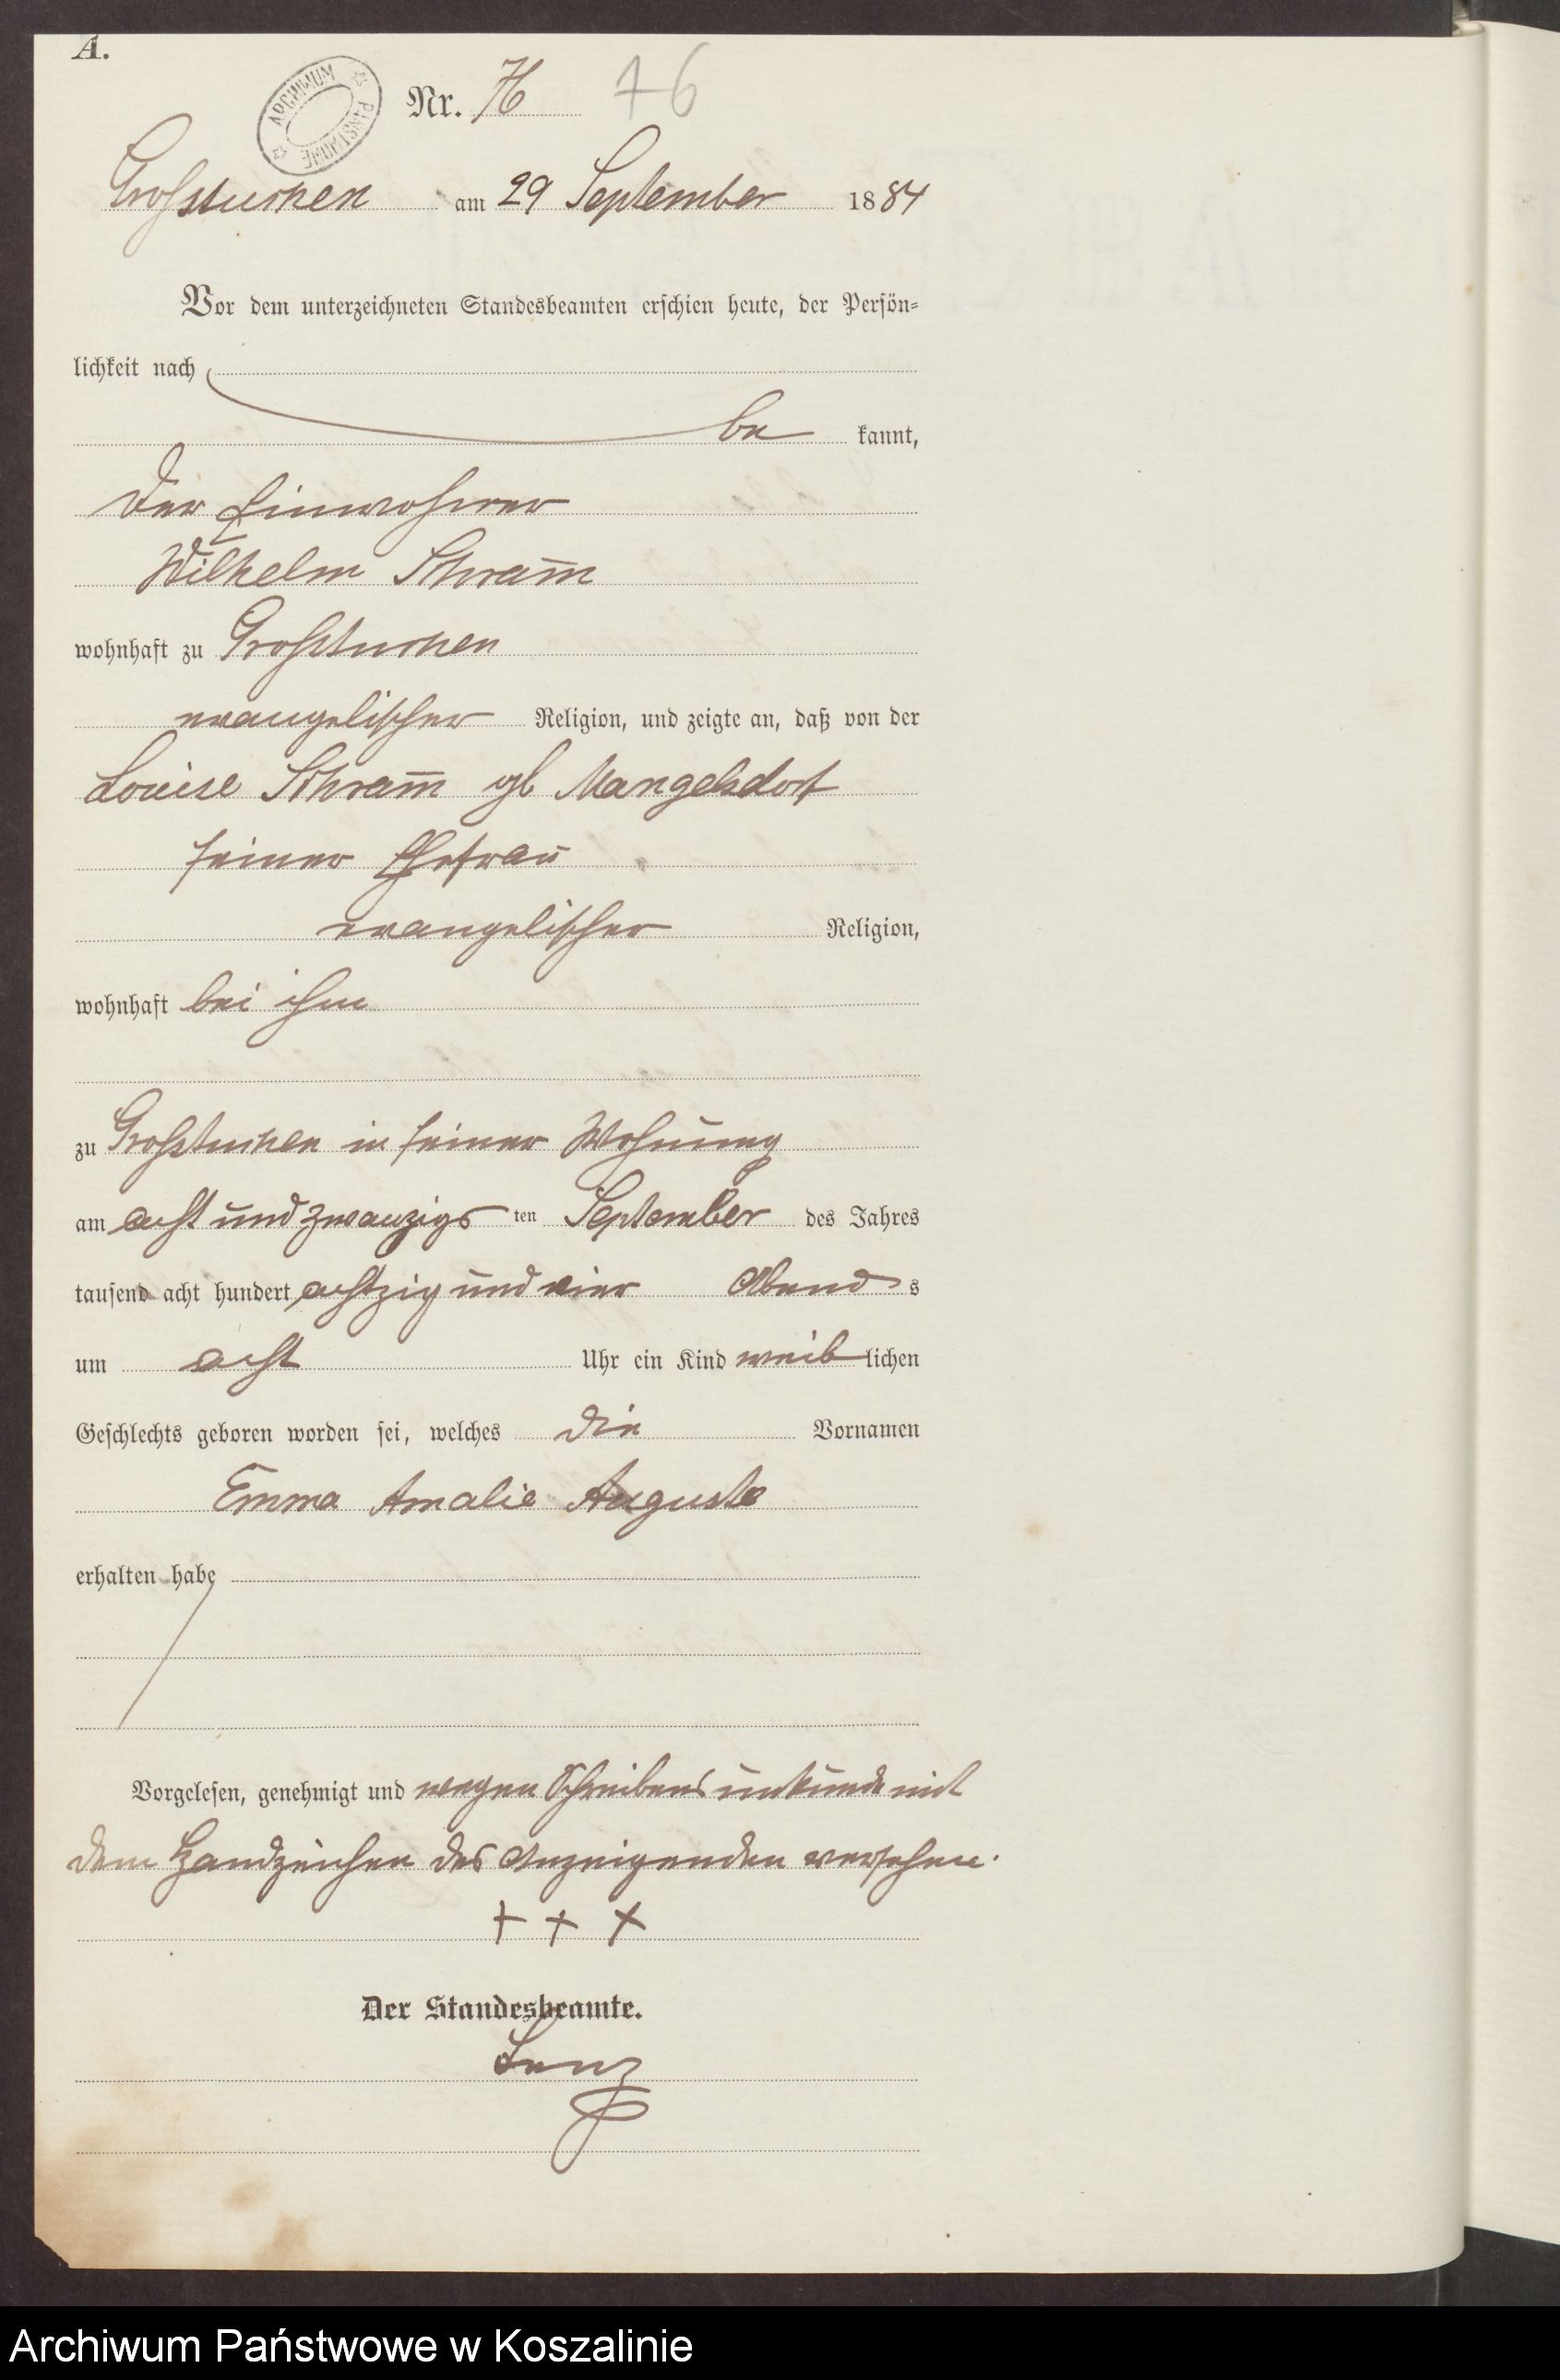 A.
ARCHIWUM PAŃSTWOWE
Nr. 76 76
Grossturnen am 29 September 1884
Vor dem unterzeichneten Standesbeamten erschien heute, der Persön-
lichkeit nach
be kannt,
der Einwohner
Wilhelm Schram̅
wohnhaft zu Grossturnen
evangelischer Religion, und zeigte an, daß von der
Louise Schram̅ gb Mangelsdorf
seiner Ehefrau
evangelischer Religion,
wohnhaft bei ihm
zu Grossturnen in seiner Wohnung
am acht und zwanzigs ten September des Jahres
tausend acht hundert achtzig und vier Abend s
um acht Uhr ein Kind weib lichen
Geschlechts geboren worden sei, welches die Vornamen
Emma Amalie Auguste
erhalten habe
Vorgelesen, genehmigt und wegen Schreibensunkunde mit
dem Handzeichen des Anzeigenden versehen.
+ + +
Der Standesbeamte.
Lenz
Archiwum Państwowe w Koszalinie